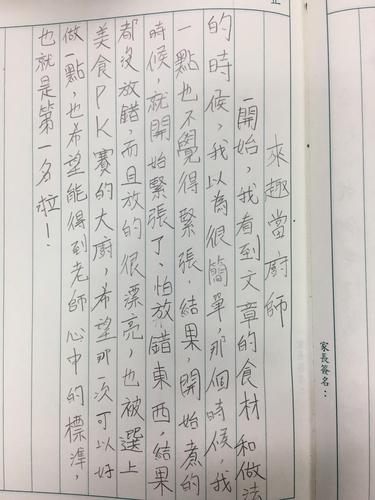 家長簽名：
來趣當廚師
一開始，我看到文章的食材和做法
的時候，我以為很簡單，那個時候，我
一點也不覺得緊張，結果，開始煮的
時候，就開始緊張了、怕放錯東西，結果
都沒放錯，而且放的很漂亮，也被選上
美食PK賽的大廚，希望那一次可以好
做一點，也希望能得到老師心中的標準，
也就是第一名啦！